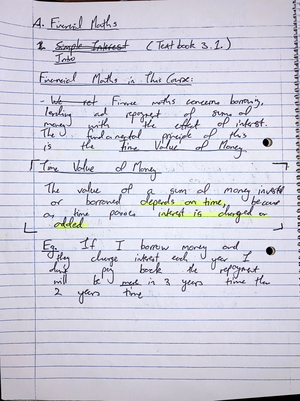 A. Financial Maths
1. Simple Interest (Textbook 3.1.)
Intro
Financial Maths in This Course:
- We ret Finance maths concerns borrowing,
lending and repayment of sums of
money with the effect of interest.
The fundamental principle of this
is the Time Value of Money.
Time Value of Money
The value of a sum of money invested
or borrowed depends on time, because
as time passes interest is charged or
added
Eg. If I borrow money and
they charge interest each year I
don't pay back the repayment
will be more in 3 years time than
2 years time.